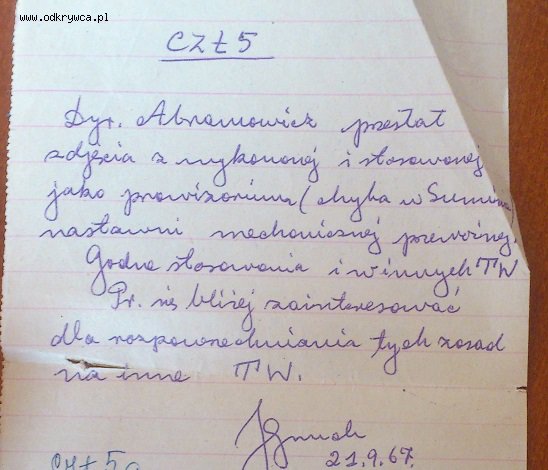 www.odkrywca.pl
CZŁ 5
Dyr. Abramowicz przesłał
zdjęcia z wykonanej i stosowanej
jako prowizorium (chyba w Suminie)
nastawni mechanicznej przewoźnej.
Godne stosowania i w innych TW
Pr. się bliżej zainteresować
dla rozpowszechniania tych zasad
na inne TW.
21.9.67.